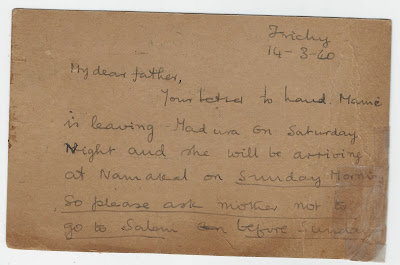 Trichy
14-3-40
My dear father,
Your letter to hand. Manie
is leaving Madura on Saturday
Night and she will be arriving
at Namakal on Sunday Morning
So please ask mother not to
go to Salem on before Sunday